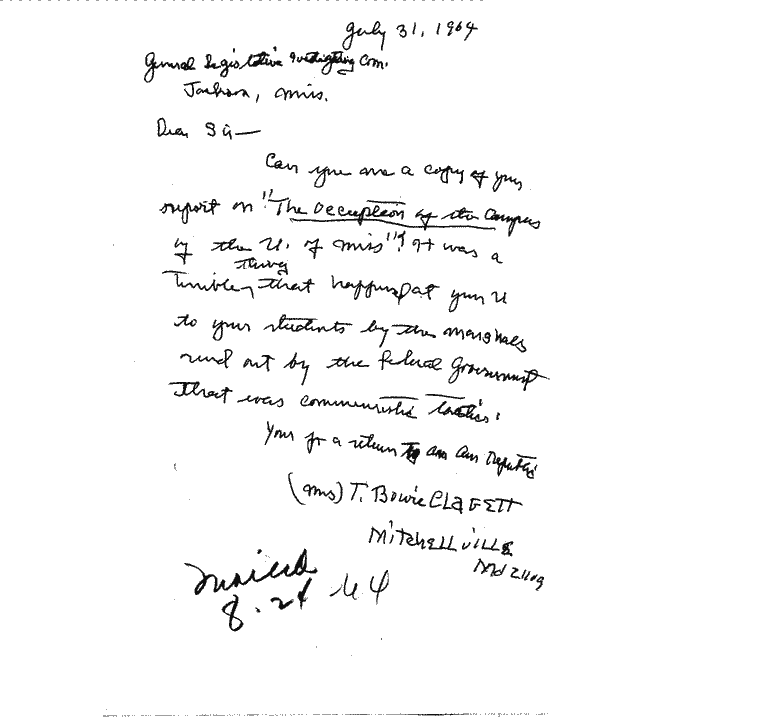 July 31, 1964
General Legislative Investigating Com.
Jackson, Miss.
Dear Sir—
Can you me a copy of your
report on "The Occupation of the Campus
of the U. of Miss"? It was a
thing
Terrible that happened at your U
to your students by the marshals
send out by the federal Government
That was communistic tactics.
Your for a return to
(Mrs) T. Bowie CLAGETT
MITCHELLVILLE
Md 21109
Mailed
8.24 64